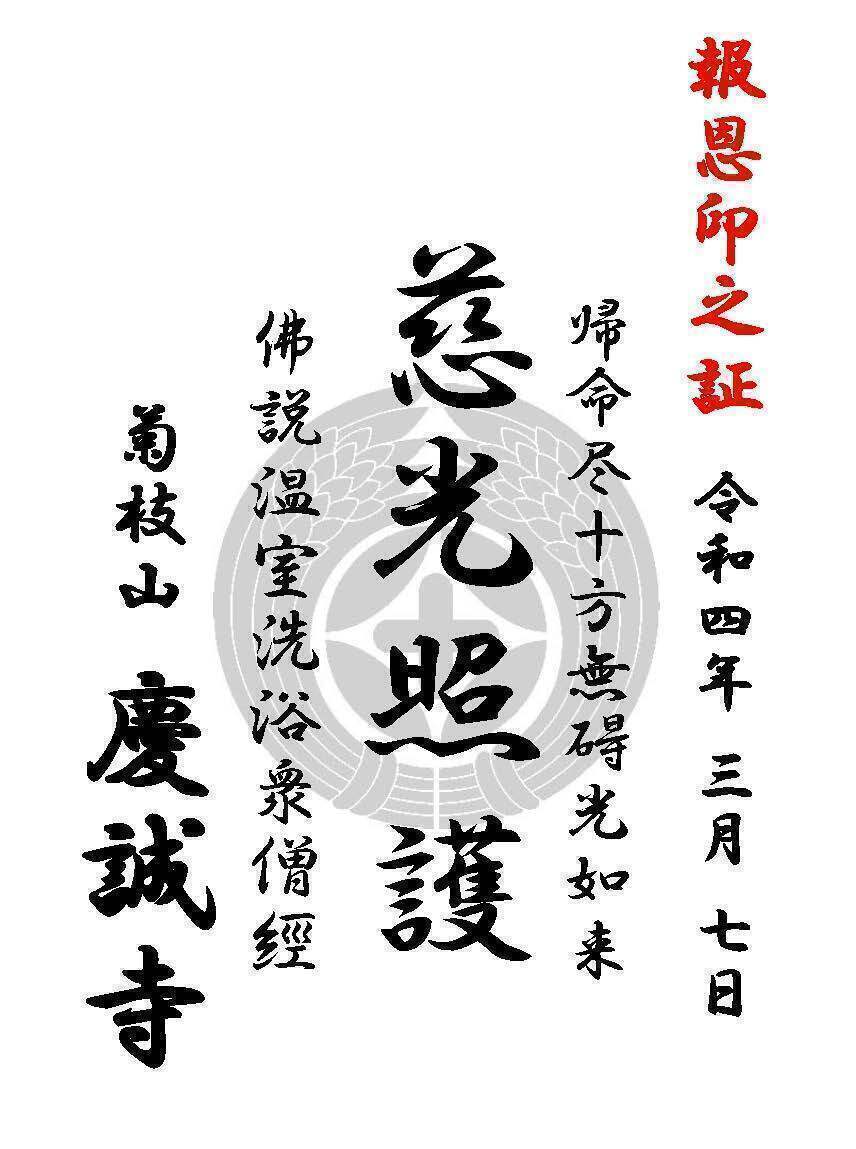 報恩印之証 令和四年 三月 七日
帰命尽十方無碍光如来
慈光照護
佛説温室洗浴衆僧經
菊枝山 慶誠寺